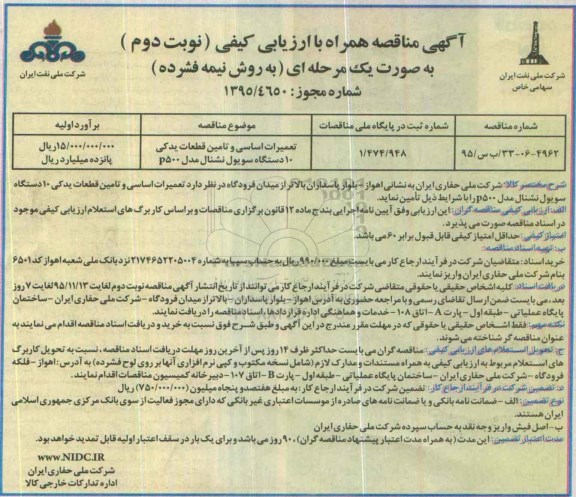 آگهی مناقصه همراه با ارزیابی کیفی ( نوبت دوم )
به صورت یک مرحله ای ( به روش نیمه فشرده )
شماره مجوز : ۱۳۹۵/۴۶۵۰
شرکت ملی نفت ایران
شرکت ملی نفت ایران
سهامی خاص
شماره مناقصه
شماره ثبت در پایگاه ملی مناقصات
موضوع مناقصه
برآورد اولیه
۳۳-۰۶-۴۹۶۲/ب س/۹۵
۱/۴۷۴/۹۴۸
تعمیرات اساسی و تامین قطعات یدکی
۱۰ دستگاه سویول نشنال مدل p۵۰۰
۱۵/۰۰۰/۰۰۰/۰۰۰ ریال
پانزده میلیارد ریال
شرح مختصر کالا: شرکت ملی حفاری ایران به نشانی اهواز - بلوار پاسداران بالاتر از میدان فرودگاه در نظر دارد تعمیرات اساسی و تامین قطعات یدکی ۱۰ دستگاه
سویول نشنال مدل p۵۰۰ را با شرایط ذیل تأمین نماید.
الف: ارزیابی کیفی مناقصه گران: این ارزیابی وفق آیین نامه اجرایی بند ج ماده ۱۲ قانون برگزاری مناقصات و براساس کاربرگ های استعلام ارزیابی کیفی موجود
در اسناد مناقصه صورت می پذیرد .
امتیاز کیفی: حداقل امتیاز کیفی قابل قبول برابر ۶۰ می باشد.
ب: تهیه اسناد مناقصه:
خرید اسناد: متقاضیان شرکت در فرآیند ارجاع کار می بایست مبلغ ۹۹۰/۰۰۰ ریال به حساب سیبا به شماره ۲۱۷۴۶۵۲۲۰۵۰۰۴ نزد بانک ملی شعبه اهواز کد ۶۵۰۱
بنام شرکت ملی حفاری ایران واریز نمایند.
دریافت اسناد: کلیه اشخاص حقیقی یا حقوقی متقاضی شرکت در فرآیند ارجاع کار می توانند از تاریخ انتشار آگهی مناقصه نوبت دوم لغایت ۹۵/۱۱/۱۳ لغایت ۷ روز
بعد، می بایست ضمن ارسال تقاضای رسمی و با مراجعه حضوری به آدرس اهواز - بلوار پاسداران - بالاتر از میدان فرودگاه - شرکت ملی حفاری ایران - ساختمان
پایگاه عملیاتی - طبقه اول - پارت A - اتاق ۱۰۸ - خدمات و هماهنگی اداره قراردادها، اسناد مناقصه را دریافت نمایند.
نکته مهم: فقط اشخاص حقیقی یا حقوقی که در مهلت مقرر مندرج در این آگهی و طبق شرح فوق نسبت به خرید و دریافت اسناد مناقصه اقدام می نمایند به
عنوان مناقصه گر شناخته می شوند.
ج: تحویل استعلام های ارزیابی کیفی: مناقصه گران می بایست حداکثر ظرف ۱۴ روز پس از آخرین روز مهلت دریافت اسناد مناقصه، نسبت به تحویل کاربرگ
های استعلام مربوط به ارزیابی کیفی به همراه مستندات و مدارک لازم (شامل نسخه مکتوب و کپی نرم افزاری آنها بر روی لوح فشرده) به آدرس: اهواز - فلکه
فرودگاه - شرکت ملی حفاری ایران - ساختمان پایگاه عملیاتی - طبقه اول - پارت B - اتاق ۱۰۷ - دبیرخانه کمیسیون مناقصات اقدام نمایند.
د: تضمین شرکت در فرآیند ارجاع کار: تضمین شرکت در فرآیند ارجاع کار: به مبلغ هفتصد و پنجاه میلیون (۷۵۰/۰۰۰/۰۰۰) ریال
نوع تضمین: الف - ضمانت نامه بانکی و یا ضمانت نامه های صادره از موسسات اعتباری غیر بانکی که دارای مجوز فعالیت از سوی بانک مرکزی جمهوری اسلامی
ایران هستند.
ب- اصل فیش واریز وجه نقد به حساب سپرده شرکت ملی حفاری ایران
مدت اعتبار تضمین: این مدت ( به همراه مدت اعتبار پیشنهاد مناقصه گران) ، ۹۰ روز می باشد و برای یک بار در سقف اعتبار اولیه قابل تمدید خواهد بود.
www.NIDC.IR
شرکت ملی حفاری ایران
اداره تدارکات خارجی کالا